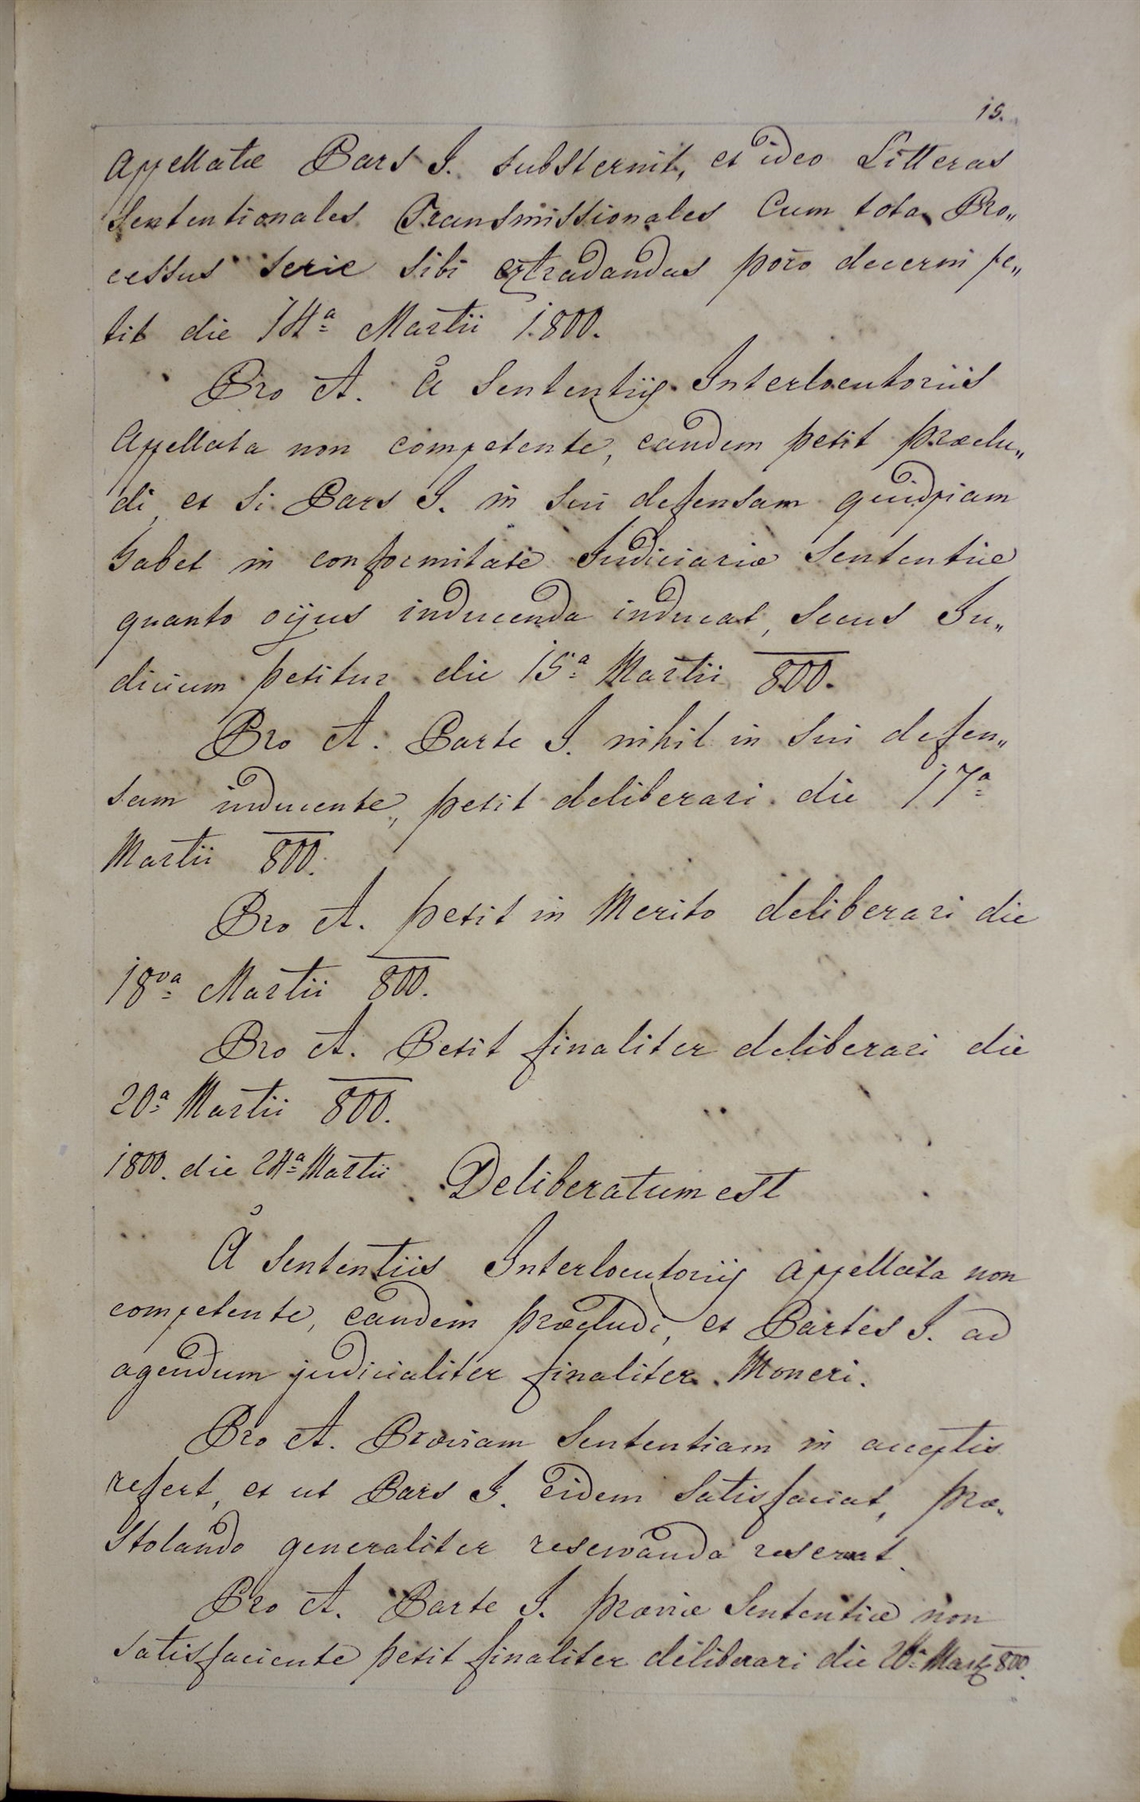 15.
Appellatæ Pars I. substernit, et ideo Litteras
Sententionales Transmissionales Cum tota Pro„
cessus serie sibi extradandas poro decerni pe„
tit die 14ª Martii 1800.
Pro A. à Sententijs Interlocutoriis
Appellata non competente, eandem petit præclu„
di et si Pars I. in sui defensam quidpiam
habet in conformitate Judiciariæ Sententiæ
quanto ocijus inducenda inducat, secus Ju„
dicium petitur die 15ª Martii 800.
Pro A. Parte I. nihil in sui defen„
sam inducente, petit deliberari die 17ª
Martii 800.
Pro A. petit in Merito deliberari die
18va Martii 800.
Pro A. Petit finaliter deliberari die
20ª Martii 800.
1800. die 24ª Martii Deliberatum est
à Sententiis Interlocutorijs Appellata non
competente, eandem præcludi, et Partes I. ad
agendum judicialiter finaliter Moneri.
Pro A. Præviam Sententiam in acceptis
refert, et ut Pars I. eidem satisfaciat, præ„
stolando generaliter reservanda reservat.
Pro A. Parte I. præviæ Sententiæ non
satisfaciente petit finaliter deliberari die Marty 800.